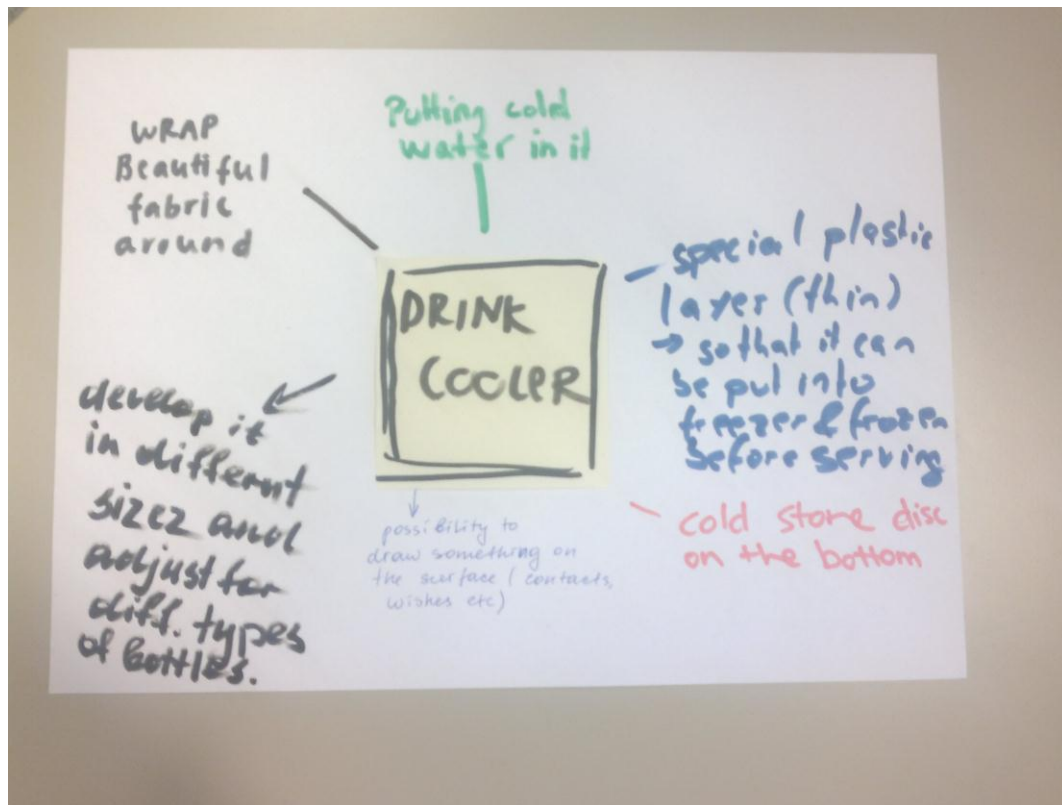 WRAP
Beautiful
fabric
around
Putting cold
water in it
DRINK
COOLER
special plastic
layer (thin)
→ so that it can
be put into
freezer & frozen
before serving
develop it
in different
sizez and
adjust for
diff. types
of bottles.
possibility to
draw something on
the surface (contacts,
wishes etc)
cold stone disc
on the bottom